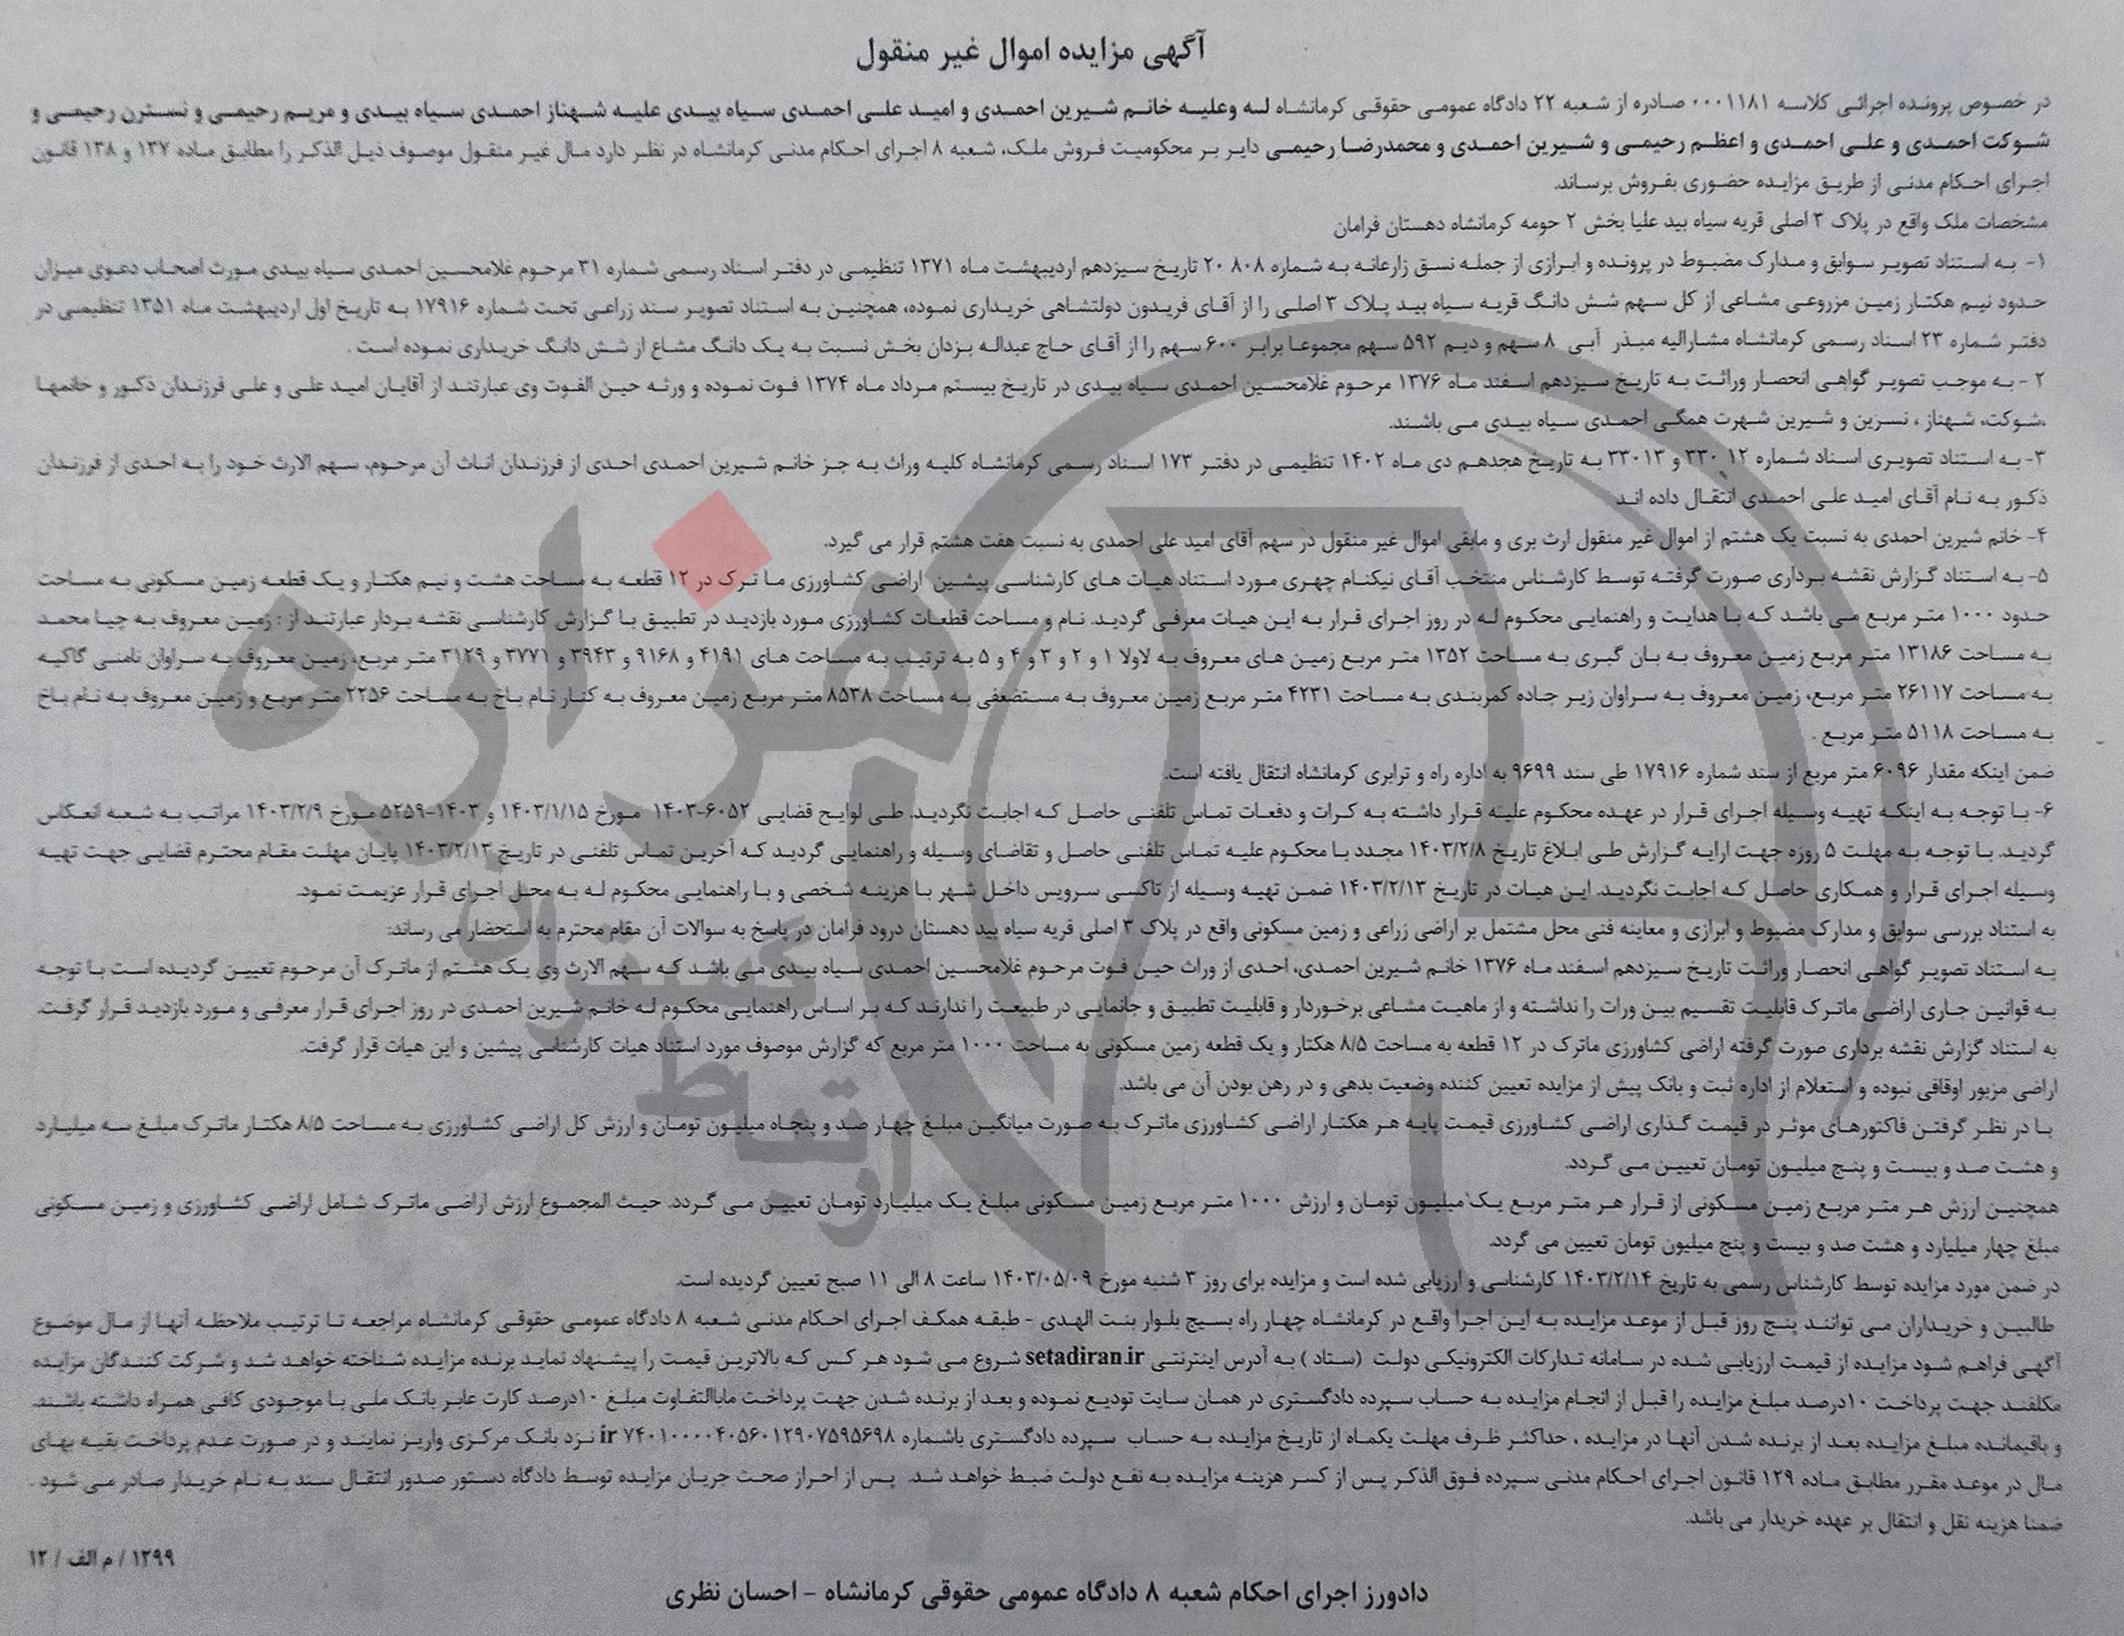 آگهی مزایده اموال غیر منقول
در خصوص پرونده اجرائی کلاسه ۰۰۰۱۱۸۱ صادره از شعبه ۲۲ دادگاه عمومی حقوقی کرمانشاه له وعلیه خانم شیرین احمدی و امید علی احمدی سیاه بیدی علیه شهناز احمدی سیاه بیدی و مریم رحیمی و نسترن رحیمی و
شوکت احمدی و علی احمدی و اعظم رحیمی و شیرین احمدی و محمدرضا رحیمی دایر بر محکومیت فروش ملک، شعبه ۸ اجرای احکام مدنی کرمانشاه در نظر دارد مال غیر منقول موصوف ذیل الذکر را مطابق ماده ۱۳۷ و ۱۳۸ قانون
اجرای احکام مدنی از طریق مزایده حضوری بفروش برساند.
مشخصات ملک واقع در پلاک ۳ اصلی قریه سیاه بید علیا بخش ۲ حومه کرمانشاه دهستان فرامان
۱- به استناد تصویر سوابق و مدارک مضبوط در پرونده و ابرازی از جمله نسق زارعانه به شماره ۲۰۸۰۸ تاریخ سیزدهم اردیبهشت ماه ۱۳۷۱ تنظیمی در دفتر اسناد رسمی شماره ۳۱ مرحوم غلامحسین احمدی سیاه بیدی مورث اصحاب دعوی میزان
حدود نیم هکتار زمین مزروعی مشاعی از کل سهم شش دانگ قریه سیاه بید پلاک ۳ اصلی را از آقای فریدون دولتشاهی خریداری نموده، همچنین به استناد تصویر سند زراعی تحت شماره ۱۷۹۱۶ به تاریخ اول اردیبهشت ماه ۱۳۵۱ تنظیمی در
دفتر شماره ۲۳ اسناد رسمی کرمانشاه مشارالیه مبذر آبی ۸ سهم و دیم ۵۹۲ سهم مجموعا برابر ۶۰۰ سهم را از آقای حاج عبداله یزدان بخش نسبت به یک دانگ مشاع از شش دانگ خریداری نموده است .
۲ - به موجب تصویر گواهی انحصار وراثت به تاریخ سیزدهم اسفند ماه ۱۳۷۶ مرحوم غلامحسین احمدی سیاه بیدی در تاریخ بیستم مرداد ماه ۱۳۷۴ فوت نموده و ورثه حین الفوت وی عبارتند از آقایان امید علی و علی فرزندان ذکور و خانمها
،شوکت، شهناز ، نسرین و شیرین شهرت همگی احمدی سیاه بیدی می باشند.
۳- به استناد تصویری اسناد شماره ۳۳۰۱۲ و ۳۳۰۱۳ به تاریخ هجدهم دی ماه ۱۴۰۲ تنظیمی در دفتر ۱۷۳ اسناد رسمی کرمانشاه کلیه وراث به جز خانم شیرین احمدی احدی از فرزندان اناث آن مرحوم، سهم الارث خود را به احدی از فرزندان
ذکور به نام آقای امید علی احمدی انتقال داده اند
۴- خانم شیرین احمدی به نسبت یک هشتم از اموال غیر منقول ارث بری و مابقی اموال غیر منقول در سهم آقای امید علی احمدی به نسبت هفت هشتم قرار می گیرد.
۵- به استناد گزارش نقشه برداری صورت گرفته توسط کارشناس منتخب آقای نیکنام چهری مورد استناد هیات های کارشناسی پیشین اراضی کشاورزی ما ترک در ۱۲ قطعه به مساحت هشت و نیم هکتار و یک قطعه زمین مسکونی به مساحت
حدود ۱۰۰۰ متر مربع می باشد که با هدایت و راهنمایی محکوم له در روز اجرای قرار به این هیات معرفی گردید. نام و مساحت قطعات کشاورزی مورد بازدید در تطبیق با گزارش کارشناسی نقشه بردار عبارتند از : زمین معروف به چیا محمد
به مساحت ۱۳۱۸۶ متر مربع زمین معروف به بان گیری به مساحت ۱۳۵۲ متر مربع زمین های معروف به لاولا ۱ و ۲ و ۳ و ۴ و ۵ به ترتیب به مساحت های ۴۱۹۱ و ۹۱۶۸ و ۳۹۴۳ و ۳۷۷۱ و ۳۱۲۹ متر مربع، زمین معروف به سراوان نامنی گاکیه
به مساحت ۲۶۱۱۷ متر مربع، زمین معروف به سراوان زیر جاده کمربندی به مساحت ۴۲۳۱ متر مربع زمین معروف به مستضعفی به مساحت ۸۵۳۸ متر مربع زمین معروف به کنار نام باخ به مساحت ۲۲۵۶ متر مربع و زمین معروف به نام باخ
به مساحت ۵۱۱۸ متر مربع .
ضمن اینکه مقدار ۶۰۹۶ متر مربع از سند شماره ۱۷۹۱۶ طی سند ۹۶۹۹ به اداره راه و ترابری کرمانشاه انتقال یافته است.
۶- با توجه به اینکه تهیه وسیله اجرای قرار در عهده محکوم علیه قرار داشته به کرات و دفعات تماس تلفنی حاصل که اجابت نگردید. طی لوایح قضایی ۶۰۵۲-۱۴۰۳ مورخ ۱۴۰۳/۱/۱۵ و ۱۴۰۳-۵۲۵۹ مورخ ۱۴۰۳/۲/۹ مراتب به شعبه انعکاس
گردید. با توجه به مهلت ۵ روزه جهت ارایه گزارش طی ابلاغ تاریخ ۱۴۰۳/۲/۸ مجدد با محکوم علیه تماس تلفنی حاصل و تقاضای وسیله و راهنمایی گردید که آخرین تماس تلفنی در تاریخ ۱۴۰۳/۲/۱۳ پایان مهلت مقام محترم قضایی جهت تهیه
وسیله اجرای قرار و همکاری حاصل که اجابت نگردید. این هیات در تاریخ ۱۴۰۳/۲/۱۳ ضمن تهیه وسیله از تاکسی سرویس داخل شهر با هزینه شخصی و با راهنمایی محکوم له به محل اجرای قرار عزیمت نمود.
به استناد بررسی سوابق و مدارک مضبوط و ابرازی و معاینه فنی محل مشتمل بر اراضی زراعی و زمین مسکونی واقع در پلاک ۳ اصلی قریه سیاه بید دهستان درود فرامان در پاسخ به سوالات آن مقام محترم به استحضار می رساند:
به استناد تصویر گواهی انحصار وراثت تاریخ سیزدهم اسفند ماه ۱۳۷۶ خانم شیرین احمدی، احدی از وراث حین فوت مرحوم غلامحسین احمدی سیاه بیدی می باشد که سهم الارث وی یک هشتم از ماترک آن مرحوم تعیین گردیده است با توجه
به قوانین جاری اراضی ماترک قابلیت تقسیم بین وراث را نداشته و از ماهیت مشاعی برخوردار و قابلیت تطبیق و جانمایی در طبیعت را ندارند که بر اساس راهنمایی محکوم له خانم شیرین احمدی در روز اجرای قرار معرفی و مورد بازدید قرار گرفت.
به استناد گزارش نقشه برداری صورت گرفته اراضی کشاورزی ماترک در ۱۲ قطعه به مساحت ۸/۵ هکتار و یک قطعه زمین مسکونی به مساحت ۱۰۰۰ متر مربع که گزارش موصوف مورد استناد هیات کارشناسی پیشین و این هیات قرار گرفت.
اراضی مزبور اوقافی نبوده و استعلام از اداره ثبت و بانک پیش از مزایده تعیین کننده وضعیت بدهی و در رهن بودن آن می باشد.
با در نظر گرفتن فاکتورهای موثر در قیمت گذاری اراضی کشاورزی قیمت پایه هر هکتار اراضی کشاورزی ماترک به صورت میانگین مبلغ چهار صد و پنجاه میلیون تومان و ارزش کل اراضی کشاورزی به مساحت ۸/۵ هکتار ماترک مبلغ سه میلیارد
و هشت صد و بیست و پنج میلیون تومان تعیین می گردد.
همچنین ارزش هر متر مربع زمین مسکونی از قرار هر متر مربع یک میلیون تومان و ارزش ۱۰۰۰ متر مربع زمین مسکونی مبلغ یک میلیارد تومان تعیین می گردد. حیث المجموع ارزش اراضی ماترک شامل اراضی کشاورزی و زمین مسکونی
مبلغ چهار میلیارد و هشت صد و بیست و پنج میلیون تومان تعیین می گردد.
در ضمن مورد مزایده توسط کارشناس رسمی به تاریخ ۱۴۰۳/۲/۱۴ کارشناسی و ارزیابی شده است و مزایده برای روز ۳ شنبه مورخ ۱۴۰۳/۰۵/۰۹ ساعت ۸ الی ۱۱ صبح تعیین گردیده است.
طالبین و خریداران می توانند پنج روز قبل از موعد مزایده به این اجرا واقع در کرمانشاه چهار راه بسیج بلوار بنت الهدی - طبقه همکف اجرای احکام مدنی شعبه ۸ دادگاه عمومی حقوقی کرمانشاه مراجعه تا ترتیب ملاحظه آنها از مال موضوع
آگهی فراهم شود مزایده از قیمت ارزیابی شده در سامانه تدارکات الکترونیکی دولت (ستاد ) به آدرس اینترنتی setadiran.ir شروع می شود هر کس که بالاترین قیمت را پیشنهاد نماید برنده مزایده شناخته خواهد شد و شرکت کنندگان مزایده
مکلفند جهت پرداخت ۱۰درصد مبلغ مزایده را قبل از انجام مزایده به حساب سپرده دادگستری در همان سایت تودیع نموده و بعد از برنده شدن جهت پرداخت ماباالتفاوت مبلغ ۱۰درصد کارت عابر بانک ملی با موجودی کافی همراه داشته باشند.
و باقیمانده مبلغ مزایده بعد از برنده شدن آنها در مزایده ، حداکثر ظرف مهلت یکماه از تاریخ مزایده به حساب سپرده دادگستری باشماره ir ۷۴۰۱۰۰۰۰۴۰۵۶۰۱۲۹۰۷۵۹۵۶۹۸ نزد بانک مرکزی واریز نمایند و در صورت عدم پرداخت بقیه بهای
مال در موعد مقرر مطابق ماده ۱۲۹ قانون اجرای احکام مدنی سپرده فوق الذکر پس از کسر هزینه مزایده به نفع دولت ضبط خواهد شد. پس از احراز صحت جریان مزایده توسط دادگاه دستور صدور انتقال سند به نام خریدار صادر می شود .
ضمنا هزینه نقل و انتقال بر عهده خریدار می باشد.
۱۲۹۹ / م الف / ۱۲
دادورز اجرای احکام شعبه ۸ دادگاه عمومی حقوقی کرمانشاه - احسان نظری
هزاره
گسترش
ارتباط